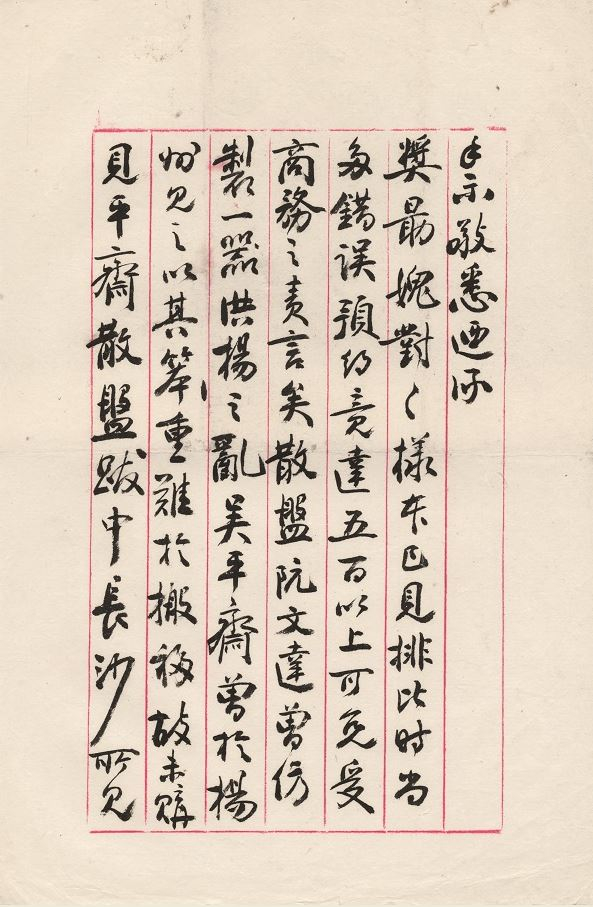 手示敬悉迺承
獎勗媿對〻樣本已見排比时尚
多錯误預约竟達五百以上可免受
商務之责言矣散盤阮文達曾仿
製一器洪楊之亂吴平齋曾於楊
州見之以其笨重難於搬移故未購
見平齋散盤跋中長沙所見